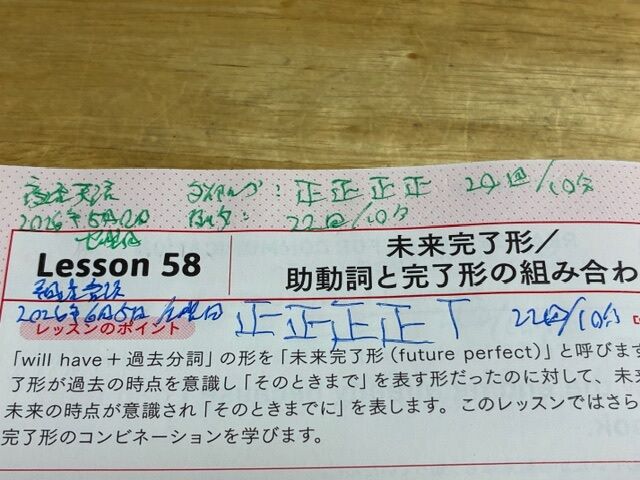 正正正正 20回/10分
22回/10分
Lesson 58
未来完了形/
助動詞と完了形の組み合わ
2026年6月5日 正正正正丅 22回/10分
レッスンのポイント
「will have+過去分詞」の形を「未来完了形(future perfect)」と呼びます
了形が過去の時点を意識し「そのときまで」を表す形だったのに対して、未来
未来の時点が意識され「そのときまでに」を表します。このレッスンではさら
完了形のコンビネーションを学びます。